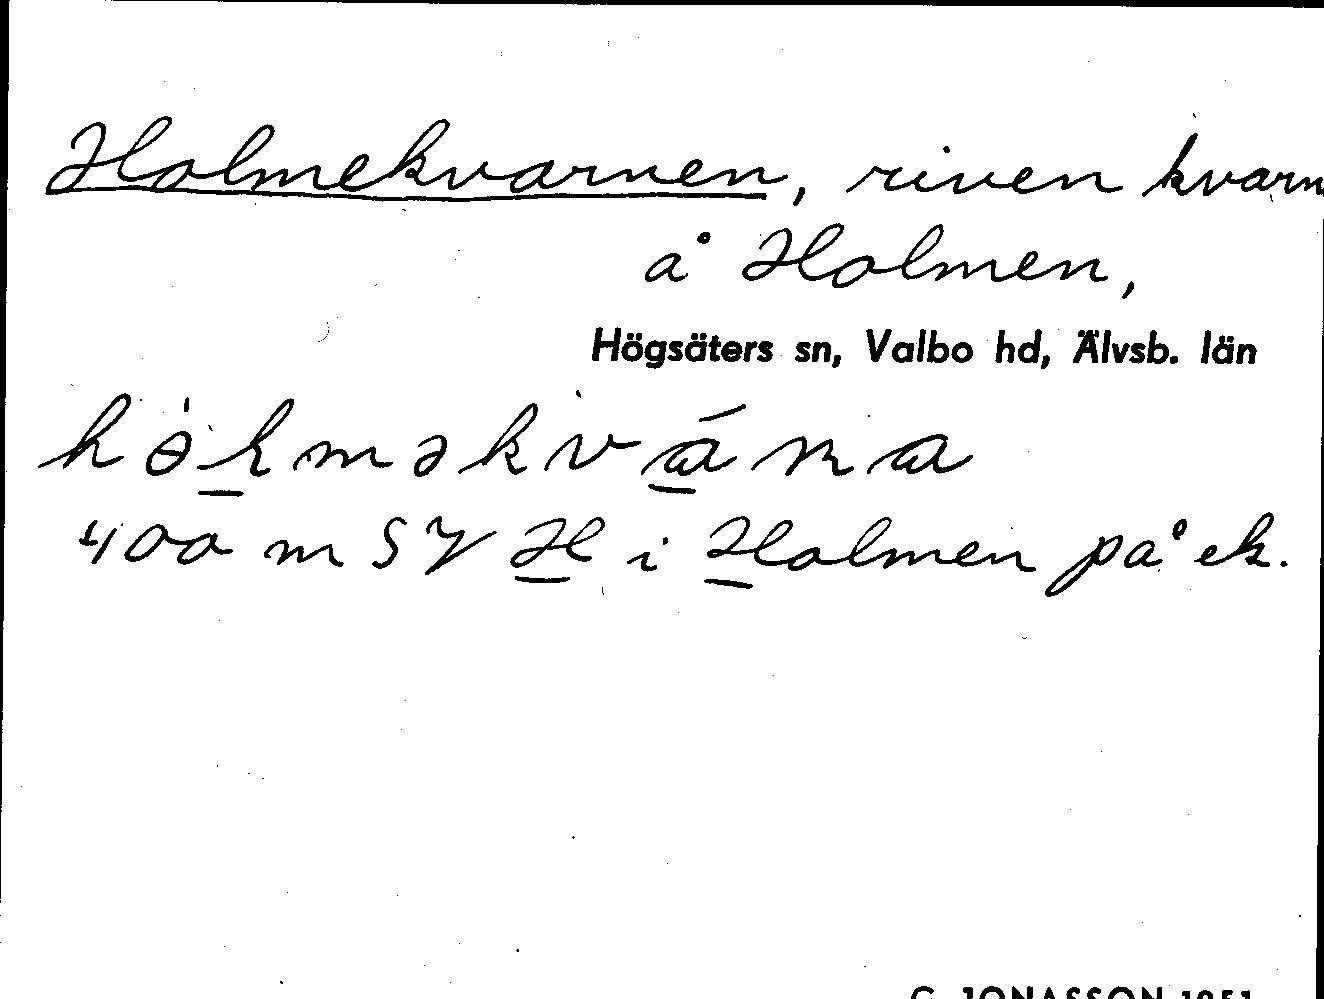 Holmekvarnen, riven kvarn
å Holmen,
Högsäters sn, Valbo hd, Älvsb. län
400 m SV H i Holmen på ek.
G. JONASSON 1951